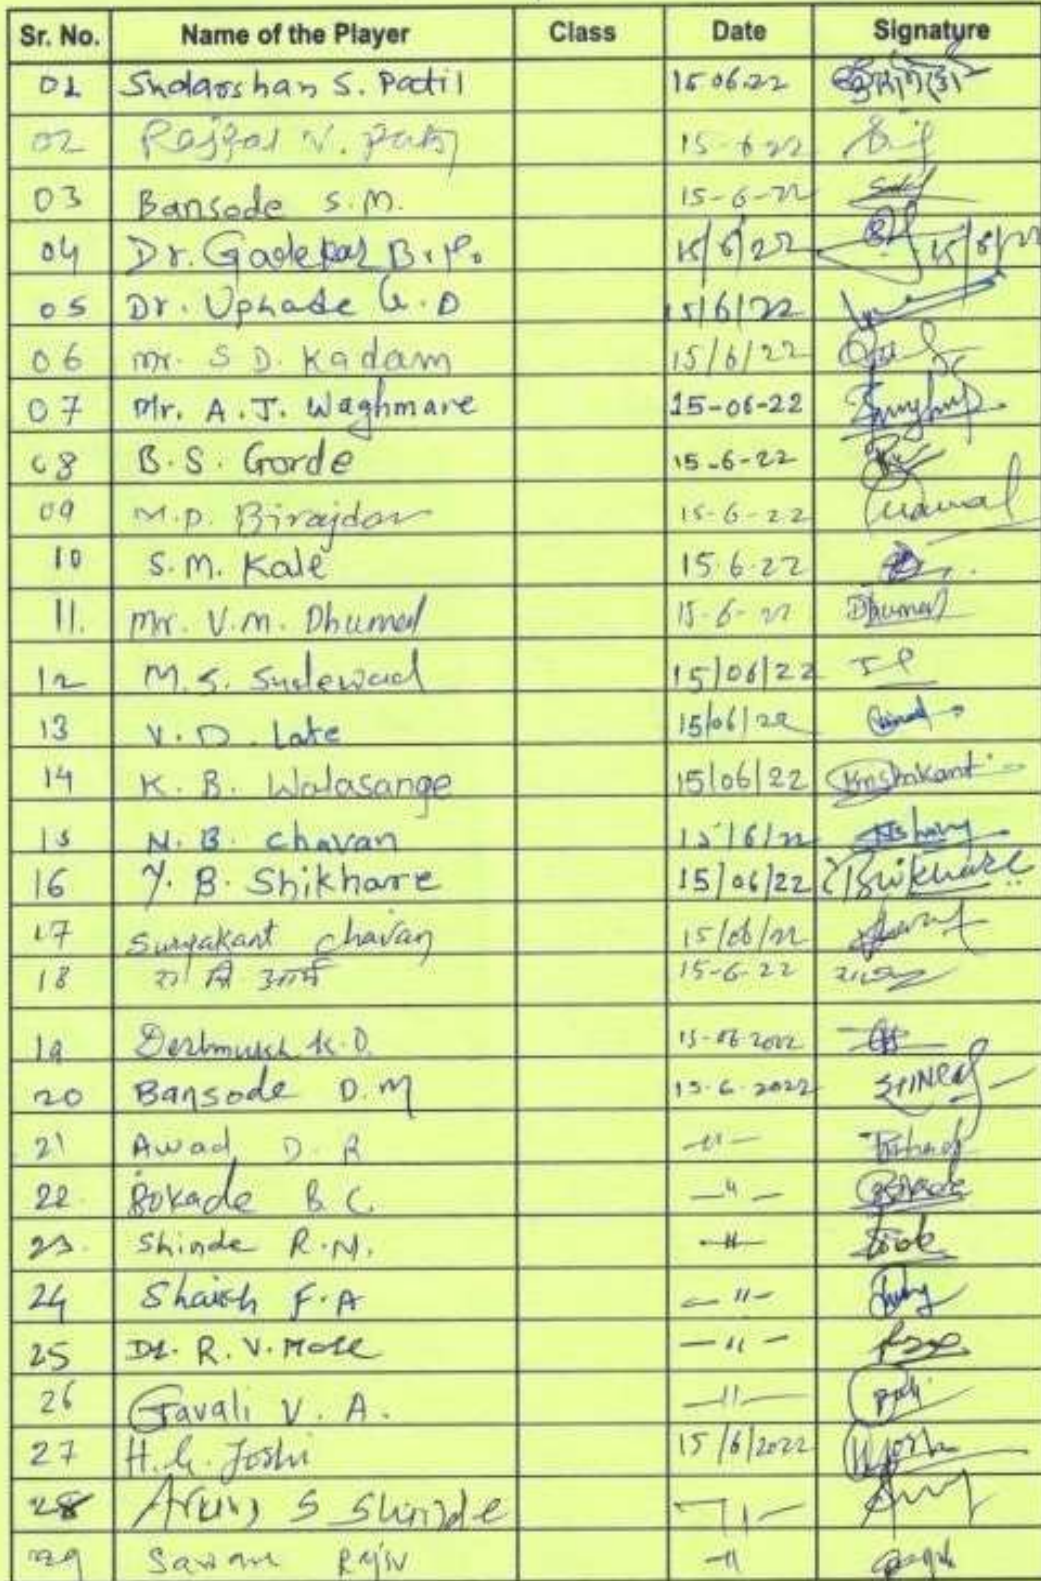 Sr. No. Name of the Player Class Date Signature
01 Sudarshan S. Patil 15.06.22
02 V. 15-6-22
03 Bansode S.M. 15-6-22
04 Dr. Gadekar B.P. 15/6/22 15/6/22
05 Dr. Uphade G.D 15/6/22
06 Mr. S D. Kadam 15/6/22
07 Mr. A. J. Waghmare 15-06-22
08 B.S. Gorde 15-6-22
09 M.P. Birajdar 15-6-22
10 S.M. Kale 15.6.22
11. Mr. V.M. Dhumal 15-6-22 Dhumal
12 M.S. Sudewad 15/06/22
13 V.D. Late 15/06/22
14 K. B. Walasange 15/06/22 Krishnkant
15 N.B. Chavan 15/6/22
16 Y. B. Shikhare 15/06/22 Shikhare
17 Suryakant Chavan 15/06/22
18 15-6-22
19 Deshmukh K.D. 15-06-2022
20 Bansode D.M 15.6.2022
21 Awad D.R -"-
22. Bokade B C. -"-
23. Shinde R.N. -"-
24 Shaikh F.A -"-
25 Dr. R.V. More -"-
26 Gavali V. A. -"-
27 H.G. Joshi 15/6/2022
28 Arun S Shinde -"-
29 Sawan -"